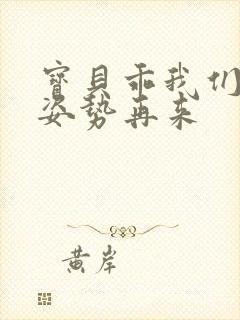 寶貝乖我们
姿势再来
黄岸